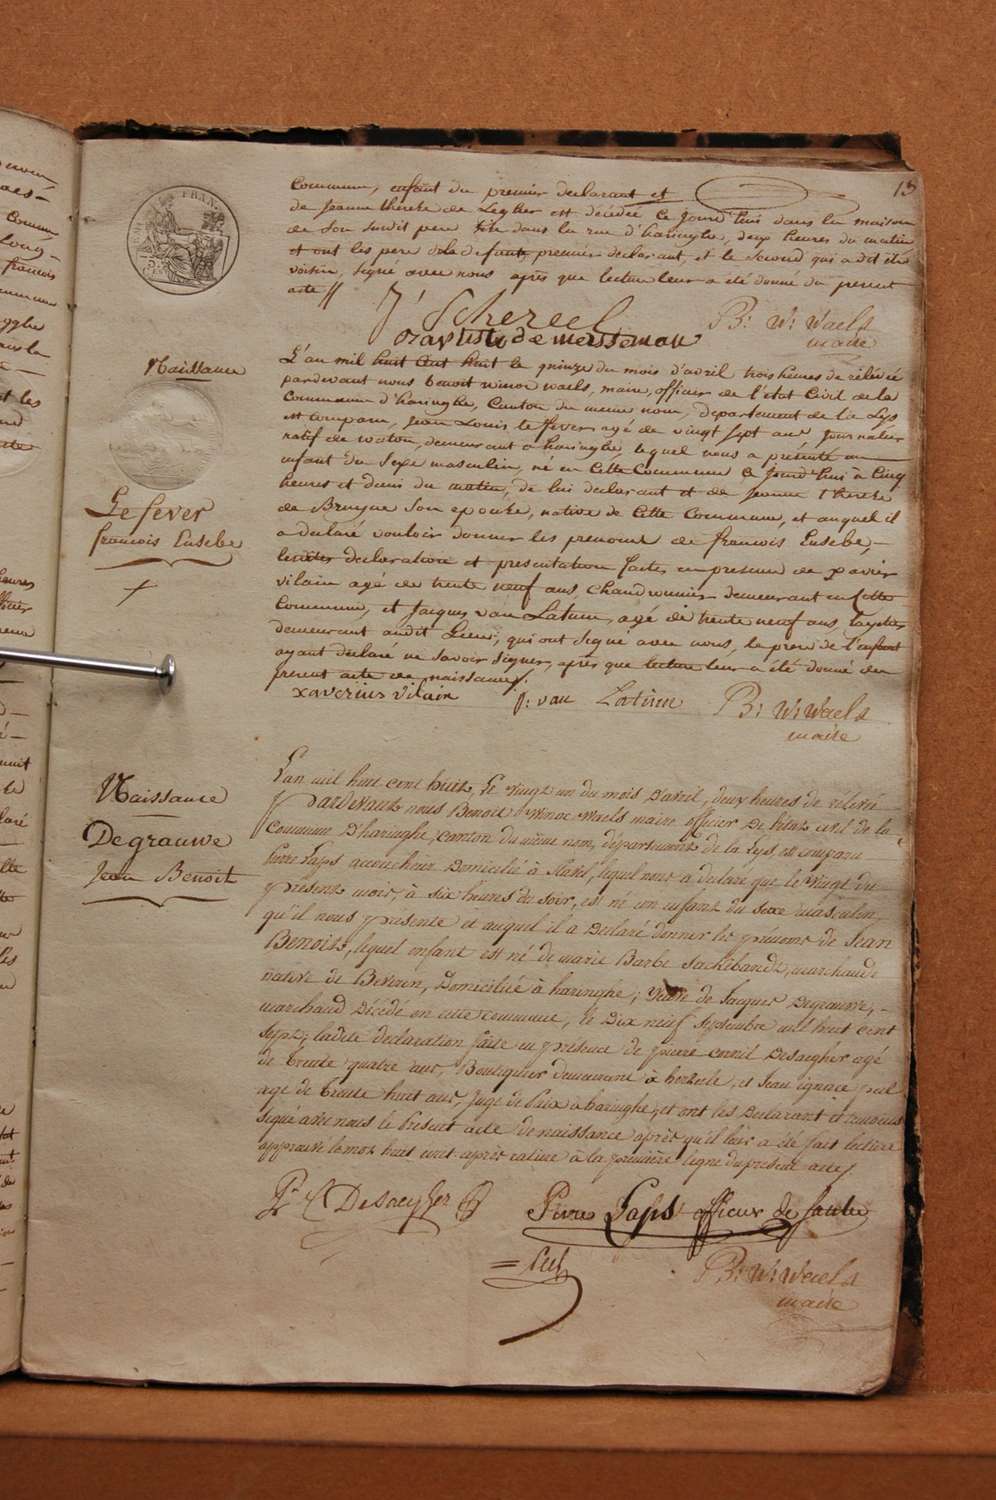 13
commune, enfant du premier declarant et
de Jeanne therese de Legher est décédée Ce Jourd'hui dans la maison
de Son Susdit pere dans la rue d'haringhe, deux heures du matin
et ont les pere de la defunte, premier declarant, et le Second qui a dit été
voisin, Signé avec nous après que lecture leur a été donné du present
acte //
J' Schereel
B: W: Waels
maire
Naissance
Lefever
francois Eusebe
L'an mil huit Cent huit le quinze du mois d'avril trois heures de relévée
pardevant nous benoit winoc waels, maire, officier de l'état Civil de la
Commune d'haringhe, Canton du meme nom, departement de la Lys
est Comparu, Jean Louis lefever agé de vingt Sept ans Journalier
natif de waton, demeurant a haringhe, lequel nous a présenté un
enfant du Sexe masculin, né en Cette Commune Ce Jourd'hui à Cinq
heures et demi du matin, de lui declarant et de Jeanne Therese
de Bruyne Son epouse, native de Cette Commune, et auquel il
a declaré vouloir donner les prenoms de francois Eusebe,
lesdites declaration et presentation faites en presence de xavier
vilain agé de trente neuf ans Chaudronnier demeurant en Cette
Commune, et Jacques van Latum, agé de trente neuf ans,
demeurant audit Lieu, qui ont Signé avec nous, le pere de l'enfant
ayant declaré ne Savoir Signer, après que lecture leur a été donné du
present acte de naissance.
xaverius vilain
J: van Latum
B: W: Waels
maire
Naissance
Degrauwe
Jean Benoit
L'an mil huit cent huit, Le vingt un du mois D'avril, deux heures de relevée
Pardevant nous Benoit Winoc Waels maire officier De l'état civil de la
commune D'haringhe, canton du même nom, département de la Lys, est comparu
Pierre Laps accoucheur Domicilié à Stavel, lequel nous a declaré que le vingt du
présent mois, à six heures du soir, est né un enfant du sexe masculin,
qu'il nous présente et auquel il a Déclaré donner les prénoms de Jean
Benoit, lequel enfant est né de marie Barbe marchande
native de Beveren, Domiciliée à haringhe; Veuve de Jacques Degrauwe,
marchand Décédé en cette commune, le Dix neuf Septembre mil huit cent
sept; ladite déclaration faite en présence de pierre cornil Desaegher agé
de trente quatre ans, Boutiquier demeurant à, et Jean ignace
age de trente huit ans, Juge de Paix à haringhe, et ont les Déclarant et temoins
signé avec nous le Present acte de naissance après qu'il leur a été fait lecture
approuvé le mot huit cent après rature à la première ligne du présent acte
Pr C Desaegher
Pierre Laps officier de Santé
B: W: Waels
maire